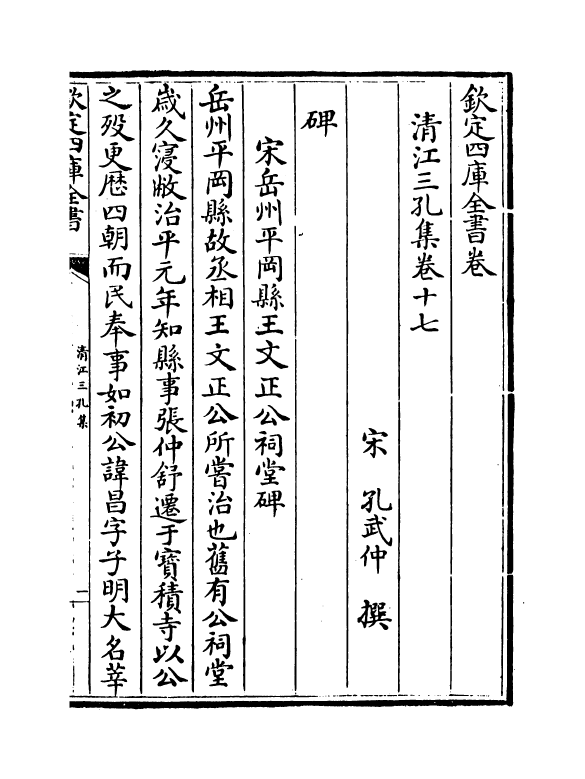 欽定四庫全書卷
清江三孔集卷十七
宋 孔武仲 撰
碑
宋岳州平岡縣王文正公祠堂碑
岳州平岡縣故丞相王文正公所嘗治也舊有公祠堂
歳久寖敝治平元年知縣事張仲舒遷于寳積寺以公
之殁更歴四朝而民奉事如初公諱昌字子明大名莘
欽定四庫全書
清江三孔集
二